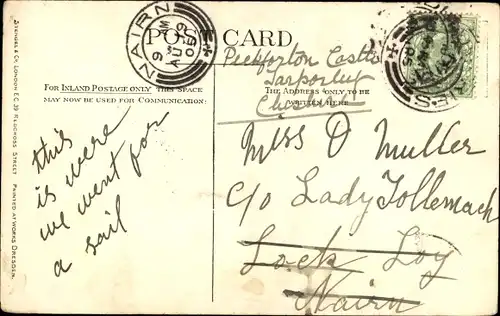 POST CARD
FOR INLAND POSTAGE ONLY THIS SPACE
MAY NOW BE USED FOR COMMUNICATION:
THE ADDRESS ONLY TO BE
WRITTEN HERE
NAIRN
AU 9
09
this
is were
we went for
a sail
Peckforton Castle
Tarporley
Cheshire
Miss O Muller
C/o Lady Tollemach
Lock Loy
Nairn
STENGEL & CO. LONDON E.C. 39 REDCROSS STREET PRINTED AT WORKS DRESDEN.